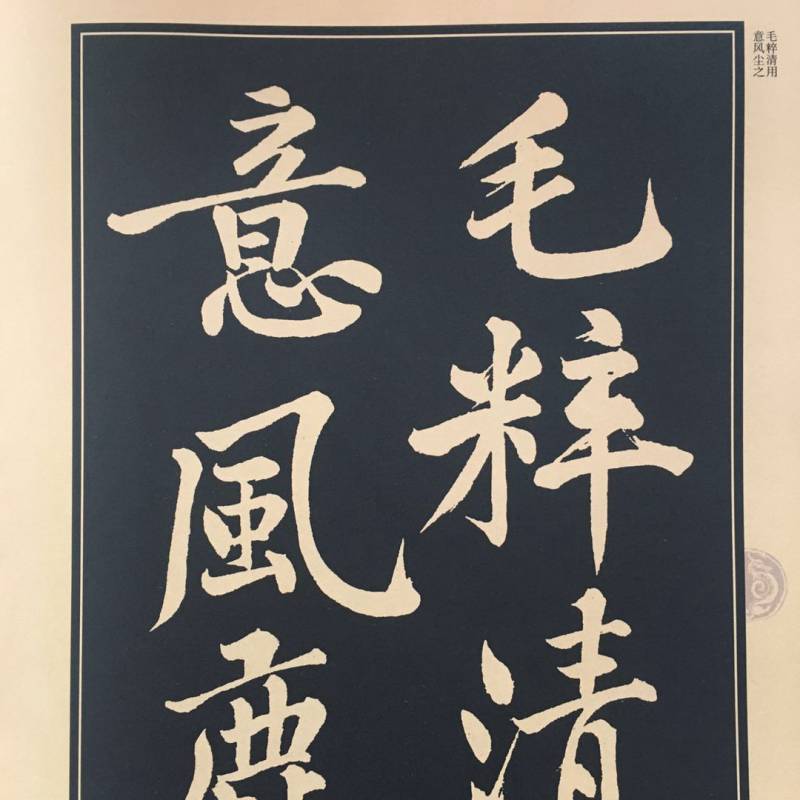 毛粹清用
意风尘之
毛粹清
意風塵